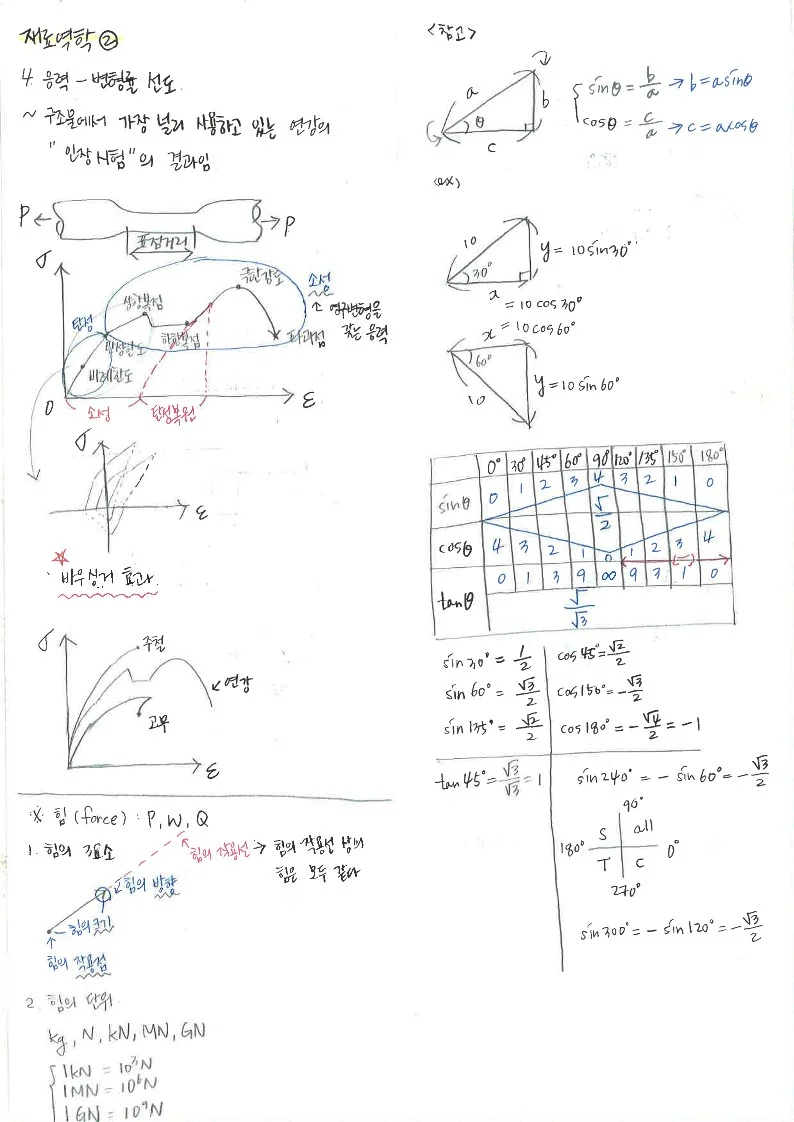 재료역학 ②
4. 응력 - 변형률 선도.
~ 구조물에서 가장 널리 사용하고 있는 연강의
"인장시험"의 결과임
P
P
표점거리
σ
극한강도
소성
↑ 영구변형을
갖는 응력
상항복점
탄성
탄성한도
하항복점
파괴점
비례한도
0
소성
탄성복원
ε
σ
ε
☆
바우싱거 효과.
σ
주철
연강
고무
ε
※ 힘 (force) : P, W, Q
1. 힘의 3요소
힘의 작용선 → 힘의 작용선 상의
힘은 모두 같다
힘의 방향
힘의 크기
힘의 작용점
2. 힘의 단위.
kg, N, kN, MN, GN
1kN = 10³N
1MN = 10⁶N
1GN = 10⁹N
<참고>
a
b
θ
c
sinθ = b/a → b = a sinθ
cosθ = c/a → c = a cosθ
ex)
10
30°
y = 10 sin30°
x
= 10 cos 30°
x = 10 cos 60°
60°
10
y = 10 sin 60°
0° 30° 45° 60° 90° 120° 135° 150° 180°
sinθ 0 1 2 3 4 3 2 1 0
√/2
cosθ 4 3 2 1 0 1 2 3 4
tanθ 0 1 3 9 ∞ 9 3 1 0
√/√3
sin 30° = 1/2
cos 45° = √2/2
sin 60° = √3/2
cos 150° = -√3/2
sin 135° = √2/2
cos 180° = -√4/2 = -1
tan 45° = √3/√3 = 1
sin 240° = - sin 60° = -√3/2
90°
S all
180° 0°
T C
270°
sin 300° = - sin 120° = -√3/2